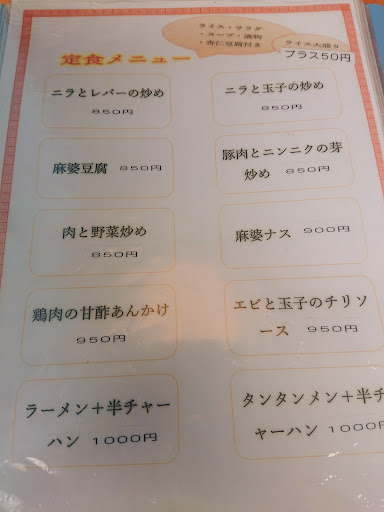 ライス・サラダ
・スープ・漬物
・杏仁豆腐付き
ライス大盛り
プラス50円
定食メニュー
ニラとレバーの炒め
850円
ニラと玉子の炒め
850円
麻婆豆腐 850円
豚肉とニンニクの芽
炒め 850円
肉と野菜炒め
850円
麻婆ナス 900円
鶏肉の甘酢あんかけ
950円
エビと玉子のチリソ
ース 950円
ラーメン＋半チャー
ハン 1000円
タンタンメン＋半チ
ャーハン 1000円